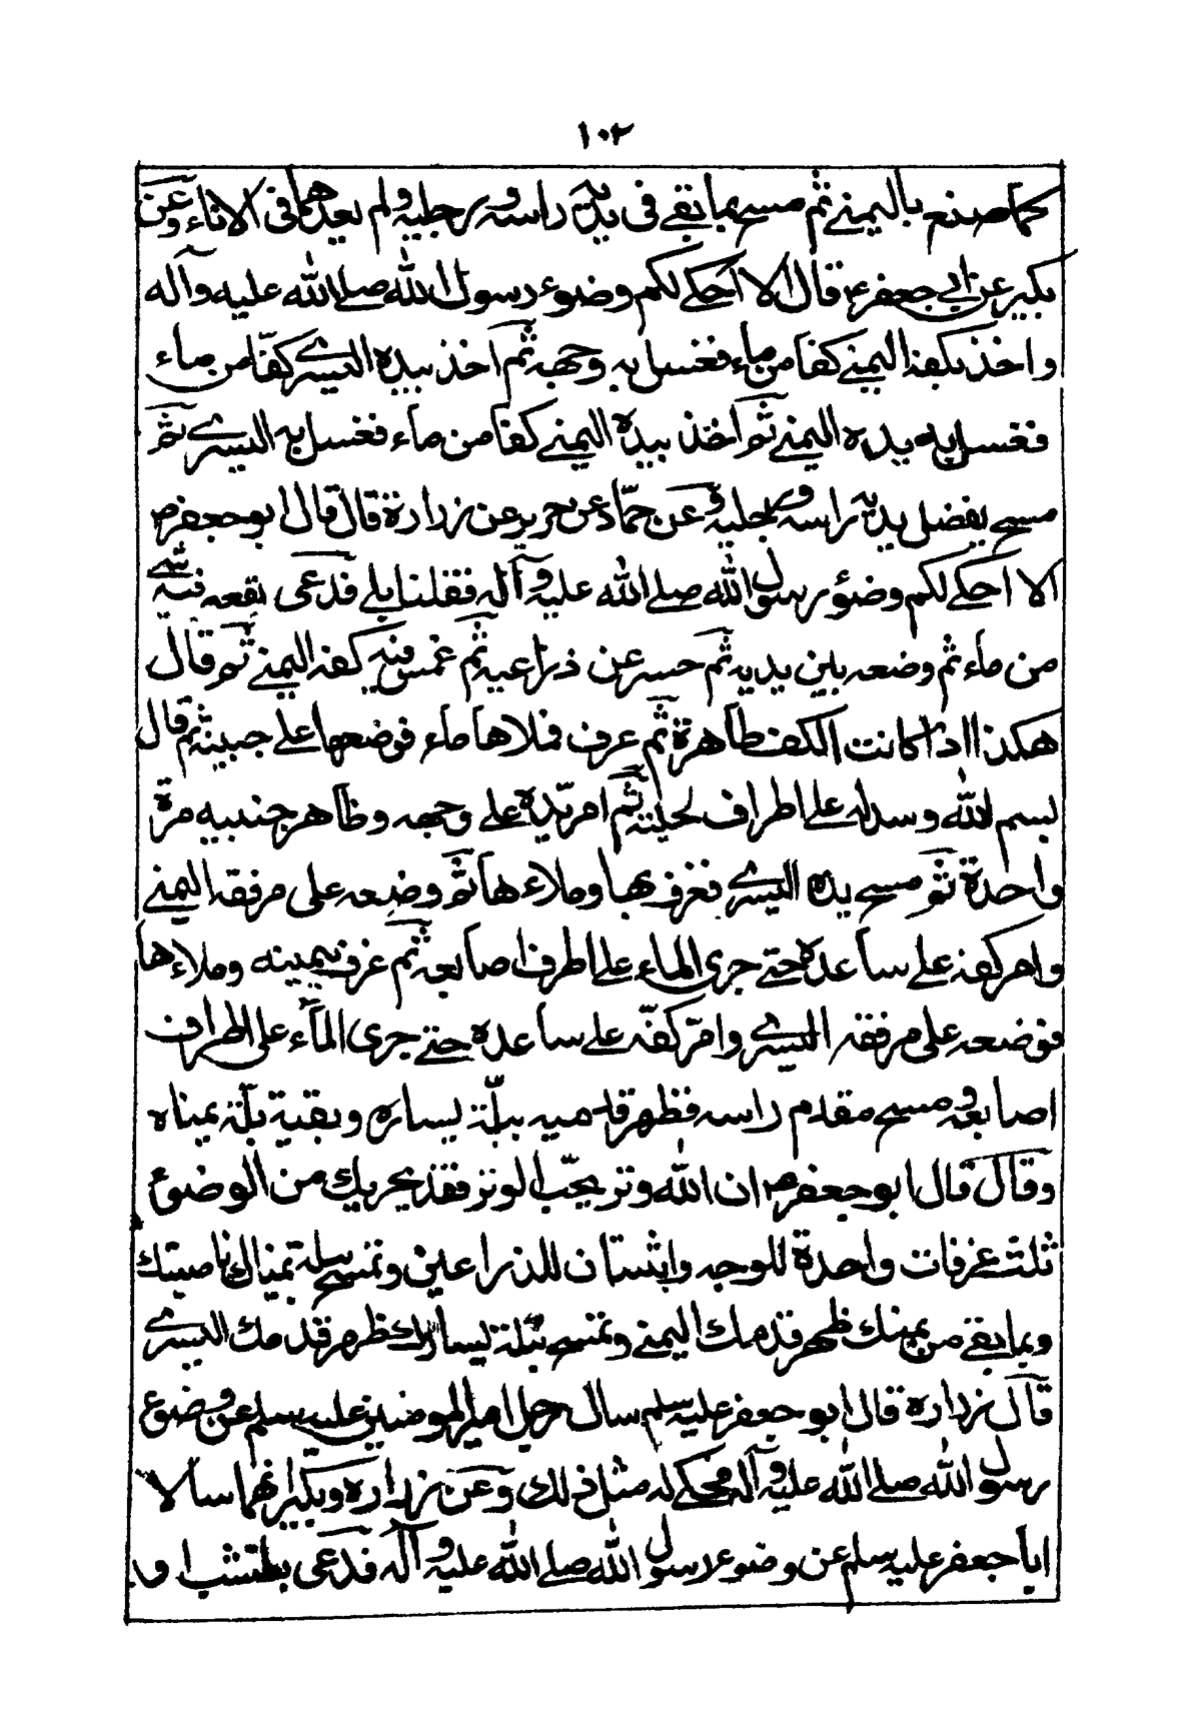 ١٠٢
كما صنع باليمنى ثم مسح بما بقى فى يديه راسه ورجليه ولم يعدهما فى الاناء وعن
بكير عن ابى جعفر ع قال الا احكى لكم وضوء رسول الله صلى الله عليه وآله
واخذ بكفه اليمنى كفا من ماء فغسل به وجهه ثم اخذ بيده اليسرى كفّا من ماء
فغسل به يده اليمنى ثم اخذ بيده اليمنى كفا من ماء فغسل به اليسرى ثم
مسح بفضل يديه راسه ورجليه وعن حمّاد عن حريز عن زرارة قال قال ابو جعفر ص
الا احكى لكم وضوء رسول الله صلى الله عليه وآله فقلنا بلى فدعى بقعه فيه شئ
من ماء ثم وضعه بين يديه ثم حسر عن ذراعيه ثم غمس فيه كفه اليمنى ثم قال
هكذا اذا كانت الكف طاهرة ثم غرف فملاها ماء فوضعها على جبينه ثم قال
بسم الله وسدله على اطراف لحيته ثم امر يده على وجهه وظاهر جنبيه مرة
واحدة ثم مسح يده اليسرى فغرف بها وملاءها ثم وضعه على مرفقه اليمنى
وامر كفه على ساعده حتى جرى الماء على اطراف اصابعه ثم غرف بيمينه وملاءها
فوضعه على مرفقه اليسرى وامرّ كفّه على ساعده حتى جرى المآء على اطراف
اصابعه ومسح مقدم راسه فظهر قدميه ببلّة يساره وبقية بلّة يمناه
وقال قال ابو جعفر ص ان الله وتر يحبّ الوتر فقد يجزيك من الوضوء
ثلث غرفات واحدة للوجه واثنتان للذراعين وتمسح ببلة يمناك ناصيتك
وبما بقى من يمينك ظهر قدمك اليمنى وتمسح ببلة يسارك ظهر قدمك اليسرى
قال زرارة قال ابو جعفر عليه سلم سال رجل امير المومنين عليه سلم عن وضوء
رسول الله صلى الله عليه وآله فحكى له مثل ذلك وعن زراره وبكير انهما سالا
ابا جعفر عليه سلم عن وضوء رسول الله صلى الله عليه وآله فدعى بطشت او